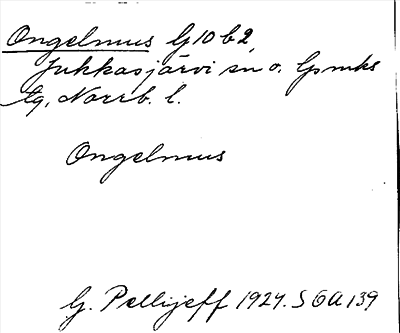 Ongelmus G10 b 2
Jukkasjärvi sn o. Lpmks
tg, Norrb. l.
Ongelmus
G. Pellijeff 1927. SOA 139